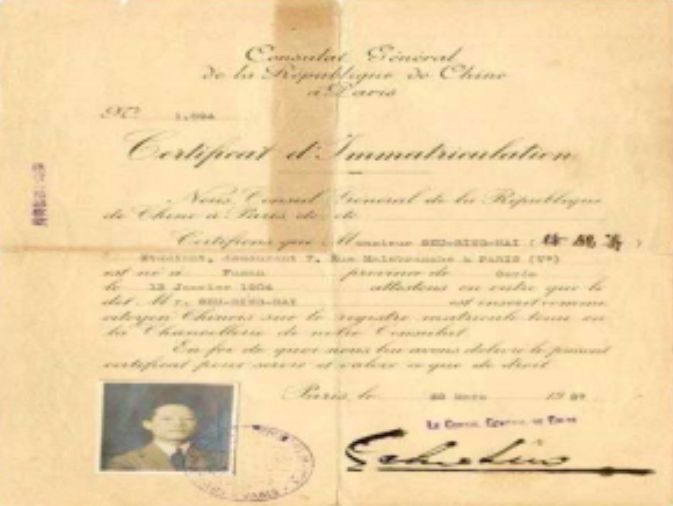 Consulat Général
de la République de Chine
à Paris
No 1,
Certificat d'Immatriculation
Nous, Consul Général de la République
de Chine à Paris, etc. etc.
Certifions que Monsieur SEU-RING-HAI (
Etudiant, demeurant 7, Rue Malebranche à PARIS (Ve)
est né à Fusan province de Corée
le 13 Janvier 1904 attestons en outre que le
dit M r. SEU-RING-HAI est inscrit comme
citoyen Chinois sur le registre matricule tenu en
la Chancellerie de notre Consulat.
En foi de quoi nous lui avons délivré le présent
certificat pour servir et valoir ce que de droit
Paris, le Mars 19
Le Consul Général de Chine
PARIS